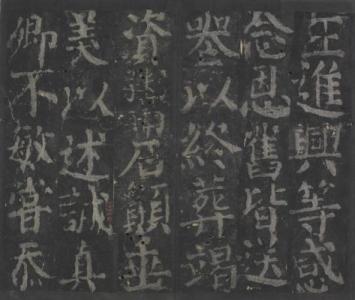 王進興等感
念恩舊皆送
喪以終葬竭
資鬻石願垂
美以述誠真
卿不敏嘗忝